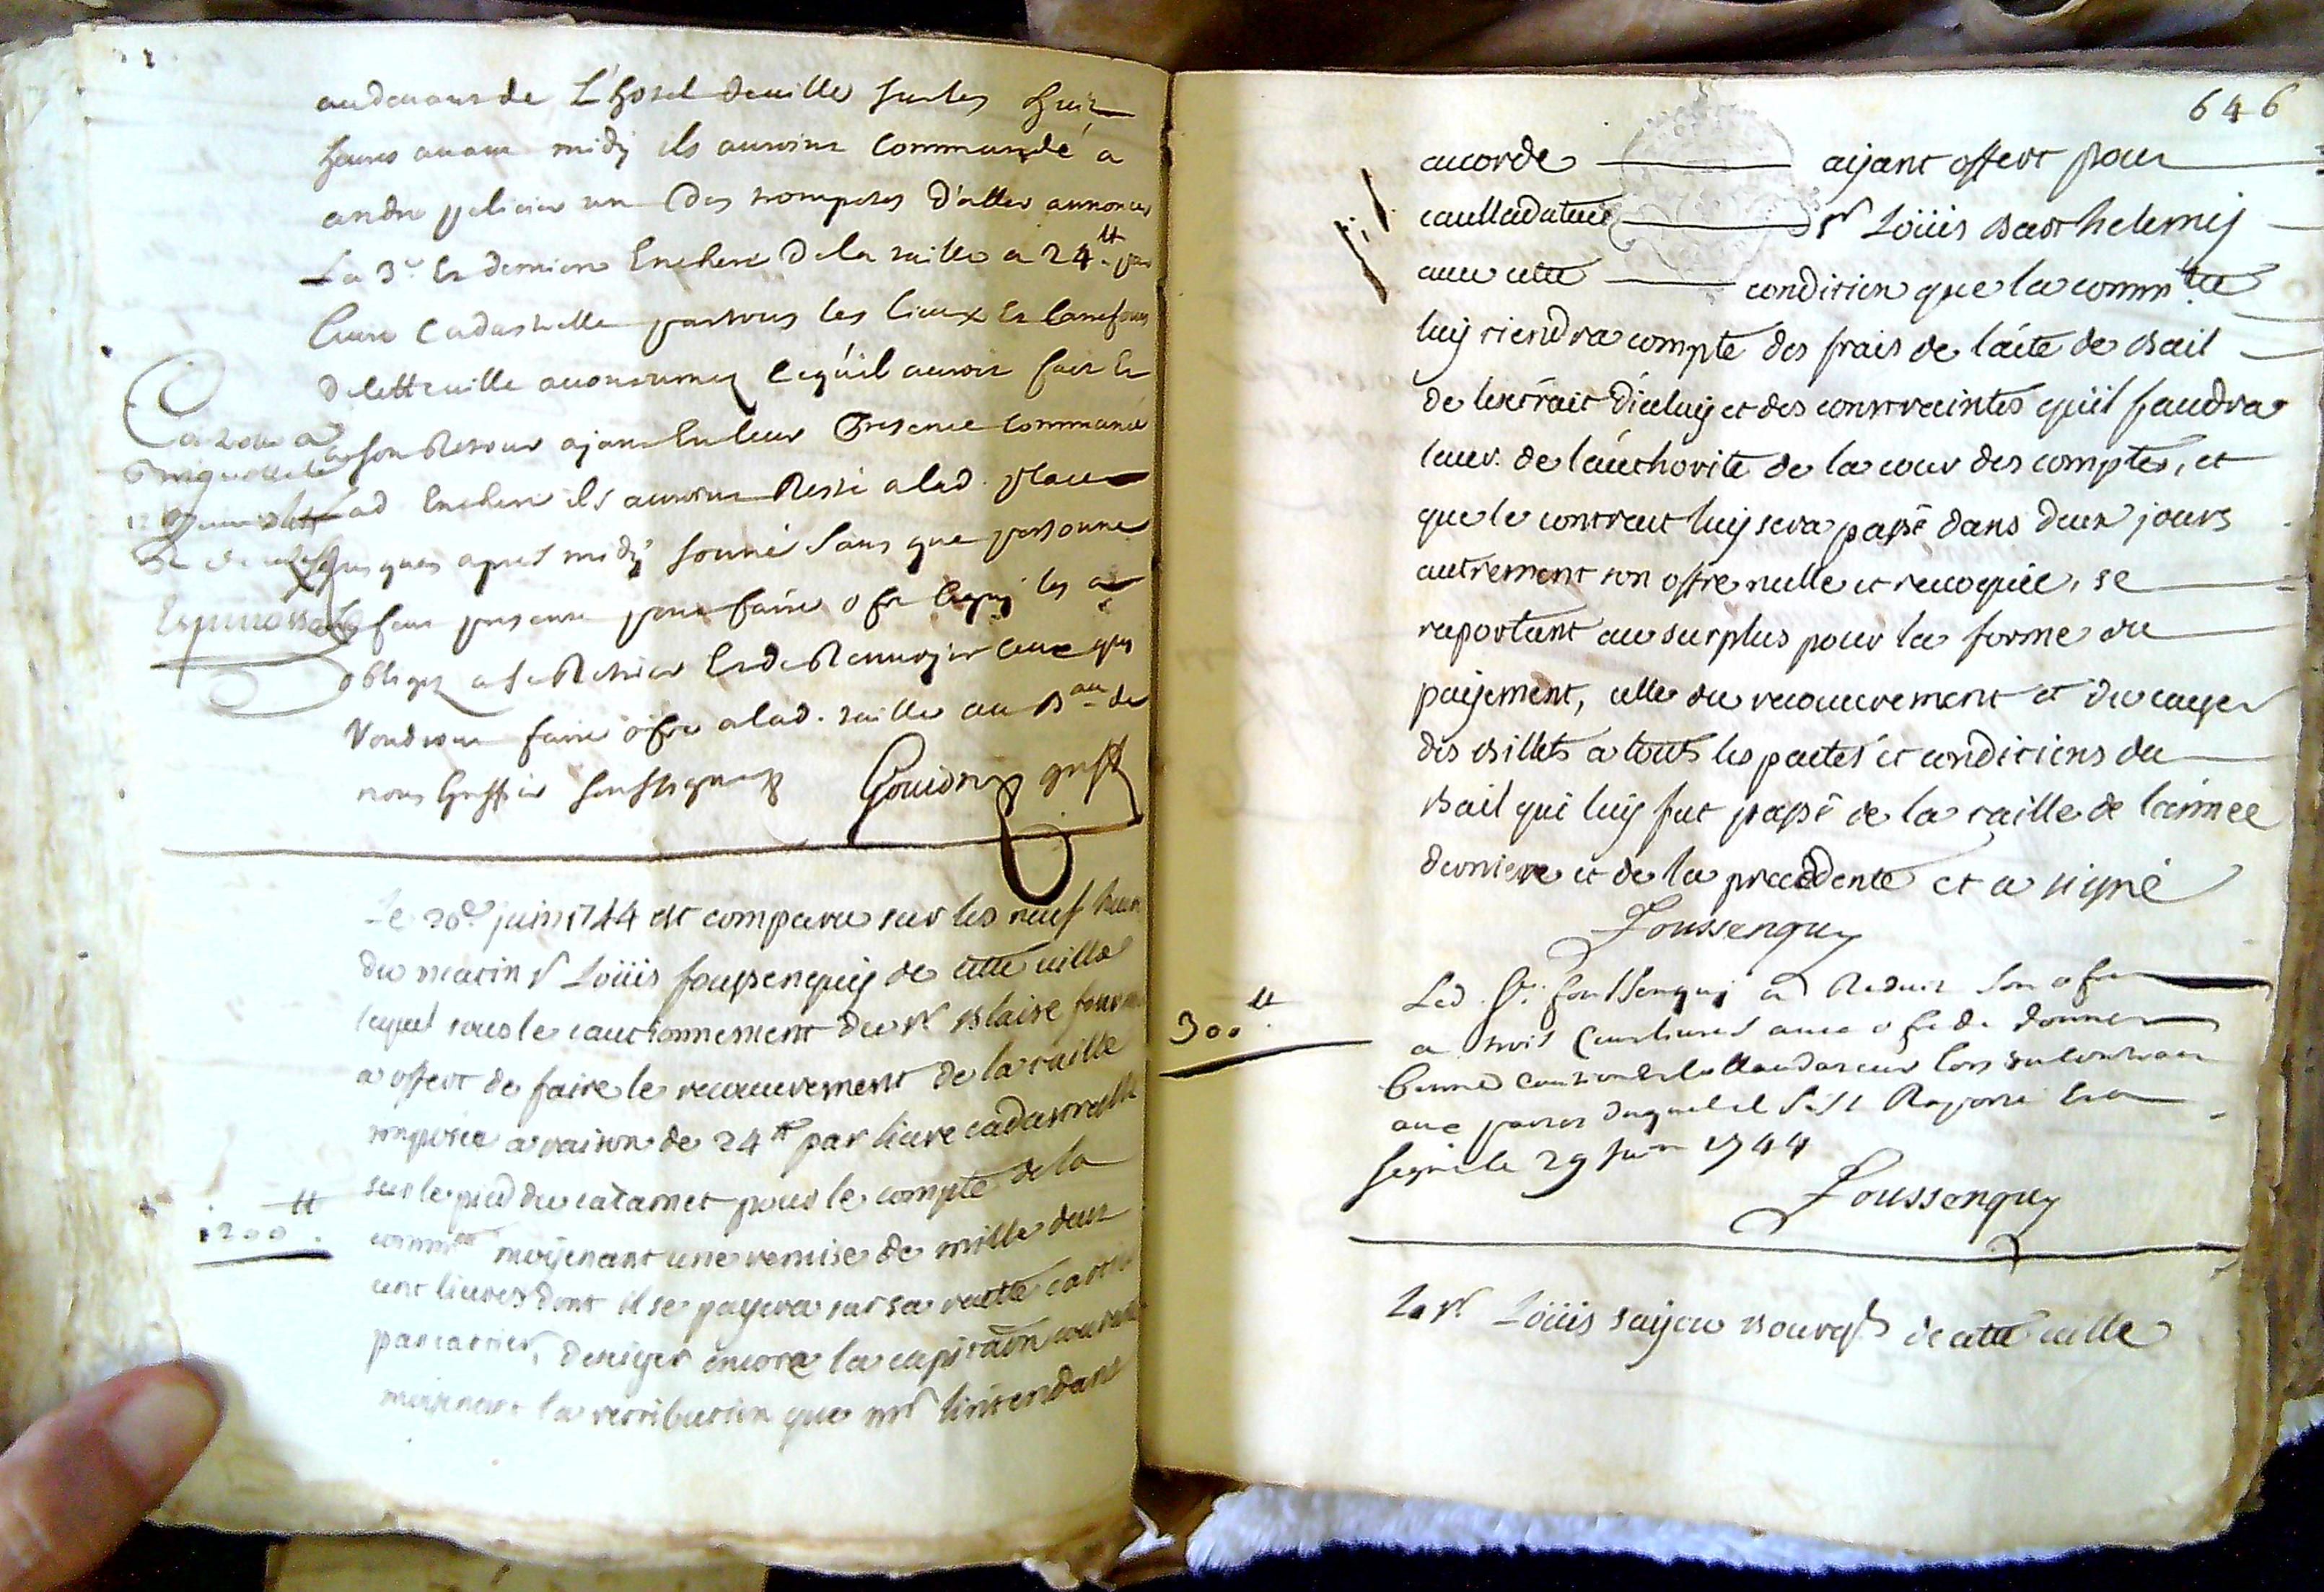 au devant de L'hotel deville sur les huit
heures avant midy ils auroint Commandé a
andre pelicier un des trompetes d'aller annoncer
La 3e. et derniere Enchere de la taille a 24 ₶ par
livre Cadastralle par tous les lieux et Carrefours
de cette ville accoutumez Ce qu'il auroit fait et
a son Retour ayant en leur Presence Commancé
Lad Enchere ils auroint Resté a lad. place
jusques apres midy sonné sans que personne
se soit presenté pour faire ofre Ce qui les a
obligez a se Retirer et de Renvoyer Ceux qui
Voudront faire ofre a lad. taille au Bau de
nous Greffier soussignez
Le 20e. juin 1744 est comparu sur les neuf heures
du matin sr Loüis foussenquy de cette ville
lequel sous le cautionnement du sr Blaise
a offert de faire le recouvrement de la taille
imposée a raison de 24 ₶ par livre cadastralle
sur le pied du catarnet pour le compte de la
commte moÿenant une remise de mille deux
1200 ₶.
cent livres dont il se payera sur sa recette cartier
par cartier, dexiger encore la capitaôn courante
moÿenant la retribution que mr lintendant
646
accorde ayant offert pour
caulladateur sr Loüis Barthelemy
avec cette condition que la commte
luy tiendra compte des frais de l'acte de Bail
de lextrait d'iceluy et des contraintes quil faudra
lever de l'authorite de la cour des comptes, et
que le contract luy sera passé dans deux jours
autrement son offre nulle et revoquée, se
raportant au surplus pour la forme du
payement, celle du recouvrement et du cayer
des Billets a touts les pactes et conditions du
Bail qui luy fut passé de la taille de l'année
derniere et de la precedente et a signé
foussenquy
Led. Sr. foussenquy a Reduit son ofre
300 ₶.
a trois Cent livres avec ofre de donner
bonne Caution et Collaudateur lors du Contract
aux pactes duquel il s'est Raporté et a
signé le 29 Juin 1744
foussenquy
Le sr Loüis sayou Bourgs de cette ville